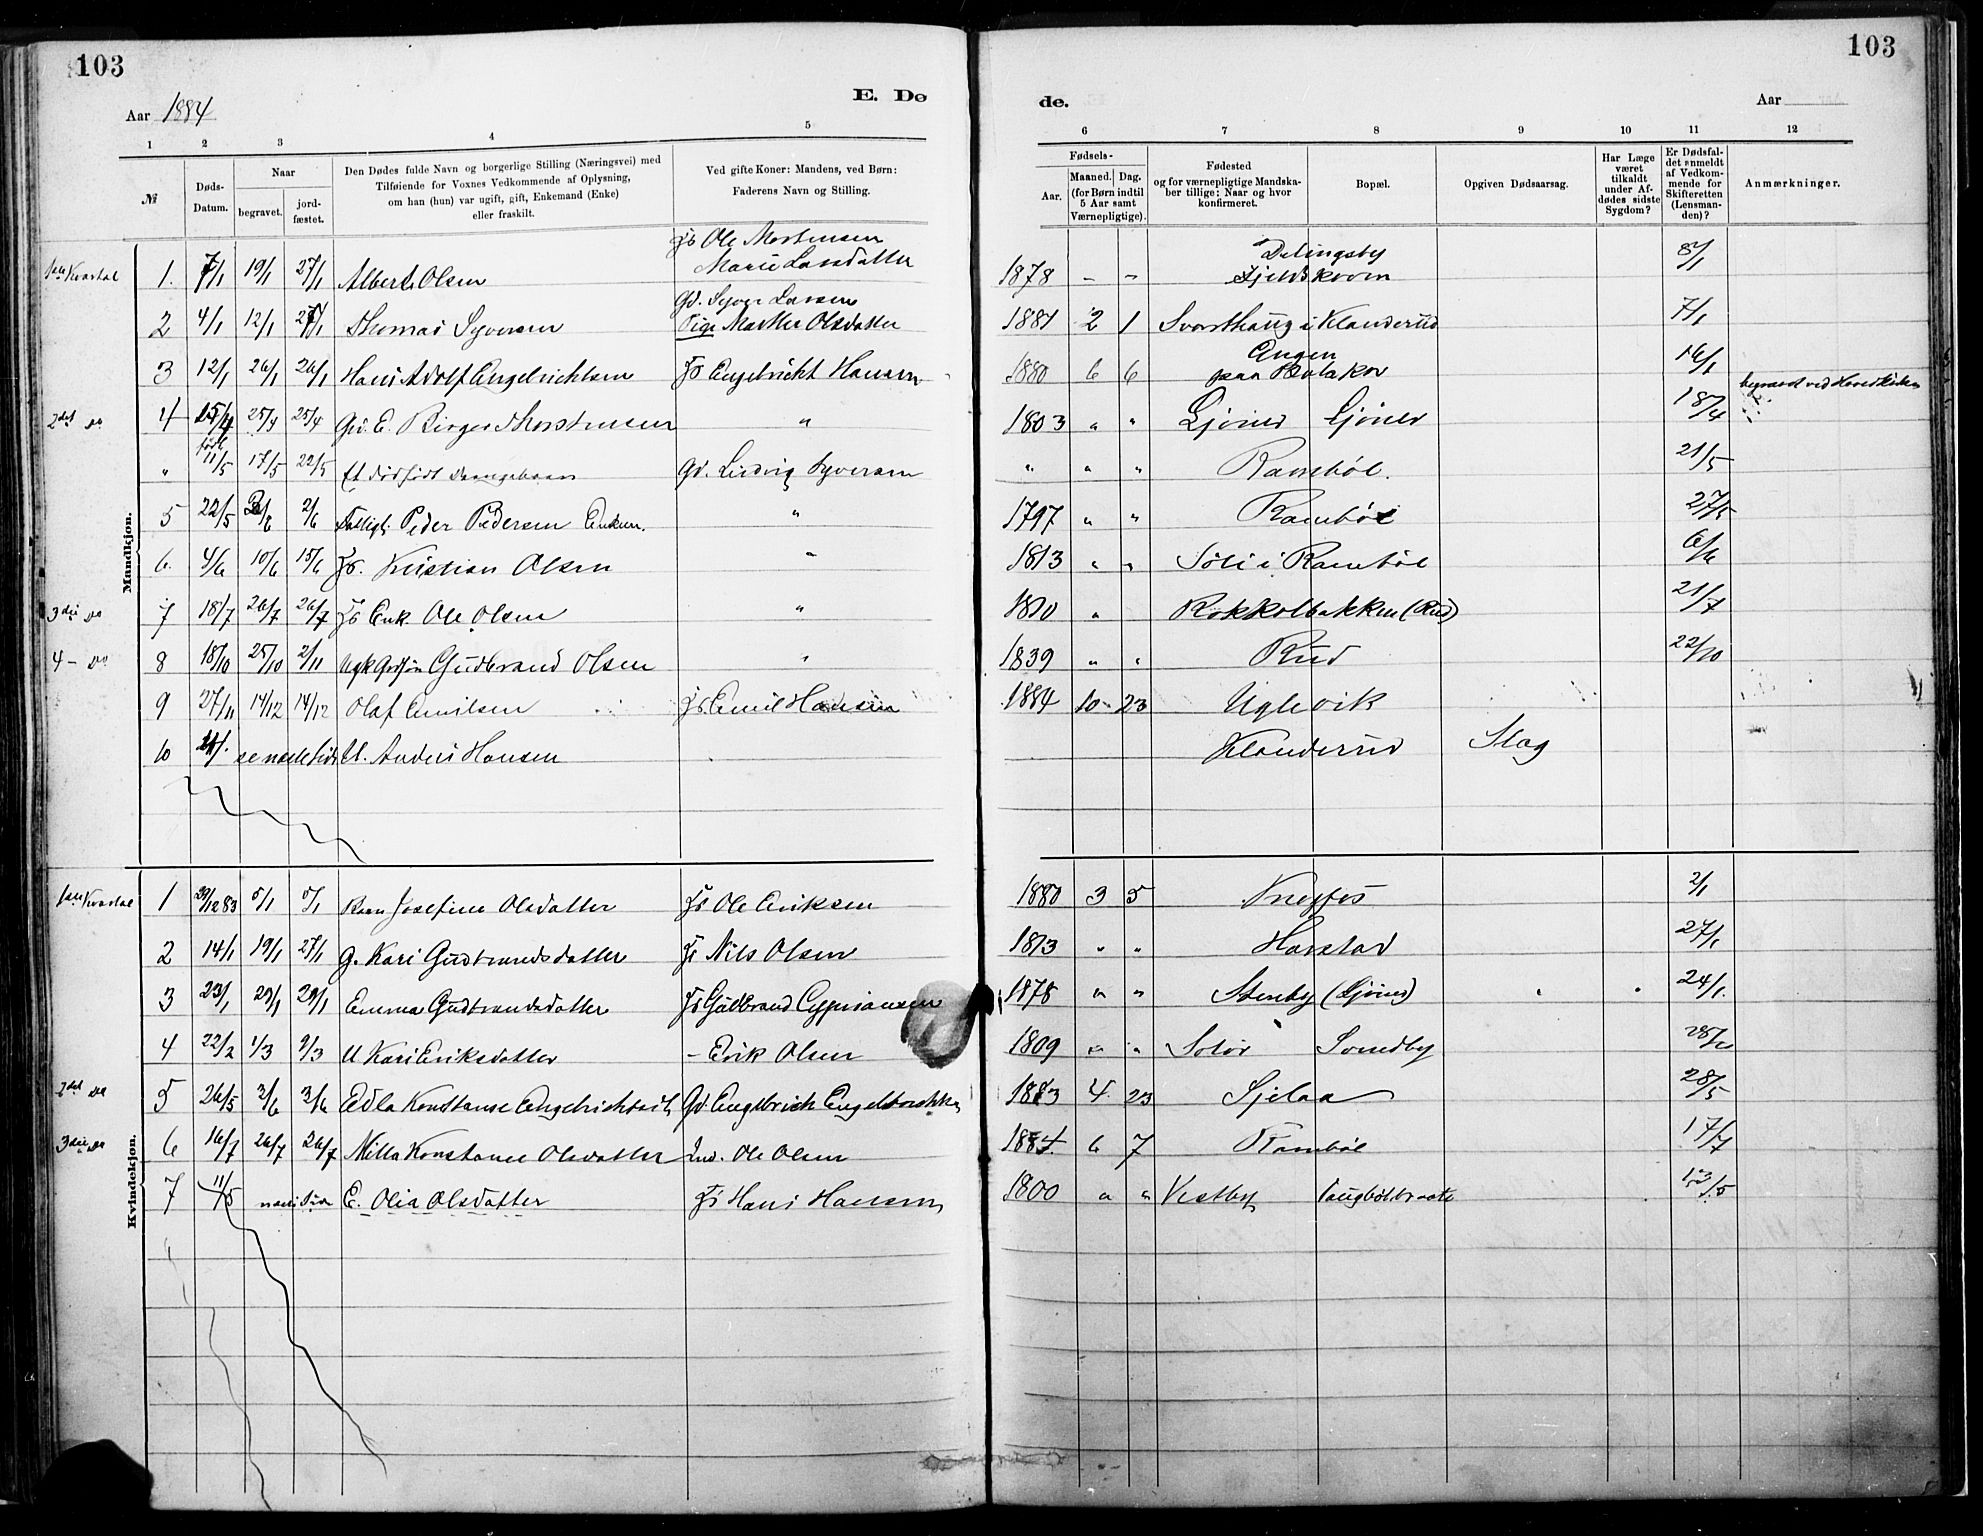 103
103
Aar 1884
E. Dø
de.
Aar
1 2 3 4 5 6 7 8 9 10 11 12
№
Døds-Datum.
Naar
begravet.
jord-fæstet.
Den Dødes fulde Navn og borgerlige Stilling (Næringsvei) med
Tilføiende for Voxnes Vedkommende af Oplysning,
om han (hun) var ugift, gift, Enkemand (Enke)
eller fraskilt.
Ved gifte Koner: Mandens, ved Børn:
Faderens Navn og Stilling.
Fødsels-
Aar.
Maaned. Dag.
(for Børn indtil
5 Aar samt
Værnepligtige).
Fødested
og for værnepligtige Mandska-
ber tillige: Naar og hvor
konfirmeret.
Bopæl.
Opgiven Dødsaarsag.
Har Læge
været
tilkaldt
under Af-
dødes sidste
Sygdom?
Er Dødsfal-
det anmeldt
af Vedkom-
mende for
Skifteretten
(Lensman-
den)?
Anmærkninger.
Mandkjøn.
1ste Kvartal 1. 7/1 19/1 27/1 Albert Olsen Fs Ole Mortensen Marie Larsdatter 1878 – – Delingsby 8/1
2 4/1 12/1 27/1 Thomas Syversen Gd. Syver Larsen Pige Marthe Olsdatter 1881 2 1 Svarthaug i Klanderud 7/1
3 12/1 26/1 26/1 Hans Adolf Engebrichtsen Fs Engebricht Hansen 1880 6 6 Engen paa 16/1
2det do 4 15/4 25/4 25/4 Gd. E. Birger Thorstensen " 1803 " " Gjøner Gjøner 18/4 begravet ved
" født 11/5 17/5 22/5 Et dødfødt Drengebarn Gd. Ludvig Syversen " " " Rambøl. 21/5
5 22/5 2/6 2/6 Fattigl. Peder Pedersen Enkem. " 1797 " " Rambøl 27/5
6. 4/6 10/6 15/6 Fs. Kristian Olsen " 1813 " " Søli i Rambøl 6/6
3die do 7 18/7 26/7 26/7 Fs Enk. Ole Olsen " 1810 " Kokkolbakken (Rud) 21/7
4 – do 8 18/10 25/10 2/11 Gudbrand Olsen " 1839 " " Rud 22/10
9 27/11 14/12 14/12 Olaf Emilsen Fs Emil Hansen 1884 10 23 Uglevik
10 se næste Side U. Anders Hansen Klanderud Slag
Kvindekjøn.
1ste Kvartal 1 29/12 83 5/1 5/1 Barn Josefine Olsdatter Fs Ole Eriksen 1880 3 5 2/1
2 14/1 19/1 27/1 G. Kari Gudbrandsdatter Fs Nils Olsen 1813 " " Harstad 27/1
3 23/1 29/1 29/1 Emma Gudbrandsdatter Fs Gudbrand Cypriansen 1878 " " Stenby (Gjøner) 24/1.
4 22/2 1/3 9/3 U Kari Eriksdatter – Erik Olsen 1809 " " Solør Sundby 28/2
2det do 5 26/5 3/6 3/6 Edla Konstanse Engebrichtsdt. Gd. Engebrick 1883 4. 23 Sjelaa 28/5
3die do 6 16/7 26/7 26/7 Milla Konstance Olsdatter Ind. Ole Olsen 1884. 6 7 Rambøl 17/7
7 11/5 E. Olia Olsdatter Fs Hans Hansen 1800 " " Vestby 13/5